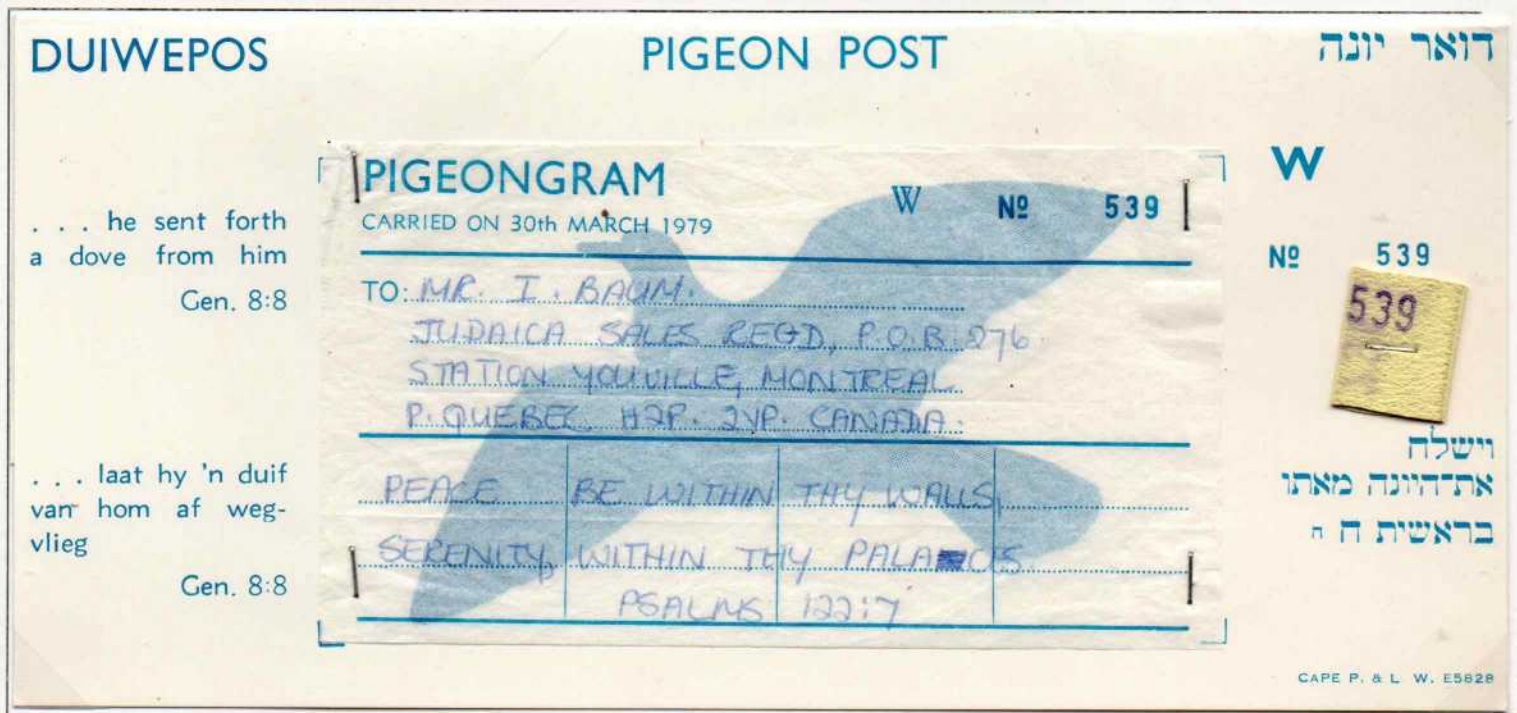 DUIWEPOS
PIGEON POST
דואר יונה
. . . he sent forth
a dove from him
Gen. 8:8
. . . laat hy 'n duif
van hom af weg-
vlieg
Gen. 8:8
PIGEONGRAM
W Nº 539
CARRIED ON 30th MARCH 1979
TO: MR. I. BAUM.
JUDAICA SALES REGD, P.O.B. 276.
STATION YOUVILLE, MONTREAL
P. QUEBEC H2P. 2VP. CANADA.
PEACE BE WITHIN THY WALLS,
SERENITY, WITHIN THY
PSALMS 122:7
W
Nº 539
539
וישלח
את־היונה מאתו
בראשית ח ח
CAPE P. & L. W. E5828